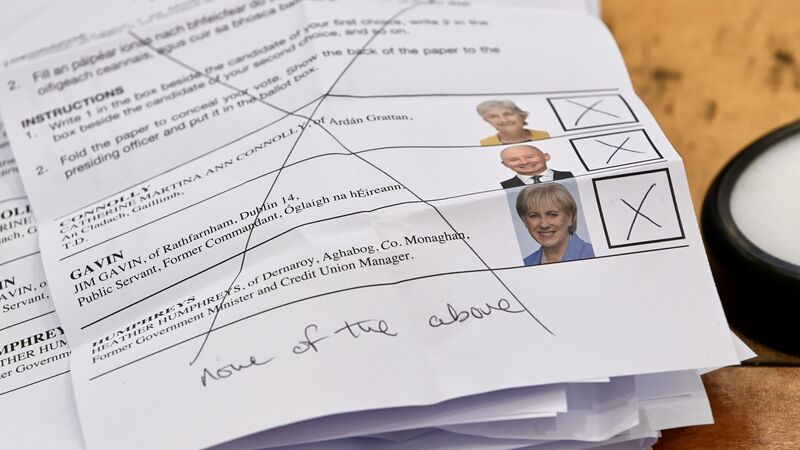 2. Fill an páipéar ionas nach bhfeicfear do
oifigeach ceannais, agus cuir sa bhosca
INSTRUCTIONS
1. Write 1 in the box beside the candidate of your first choice, write 2 in the
box beside the candidate of your second choice, and so on.
2. Fold the paper to conceal your vote. Show the back of the paper to the
presiding officer and put it in the ballot box.
CONNOLLY
CATHERINE MARTINA ANN CONNOLLY, of Ardán Grattan,
An Cladach, Gaillimh.
T.D.
GAVIN
JIM GAVIN, of Rathfarnham, Dublin 14,
Public Servant, Former Commandant, Óglaigh na hÉireann.
HUMPHREYS
HEATHER HUMPHREYS, of Dernaroy, Aghabog, Co. Monaghan,
Former Government Minister and Credit Union Manager.
none of the above
ERINE
Gaillimh.
GAVIN
VIN, of
vant,
PHREYS
THER HUM
er Govern